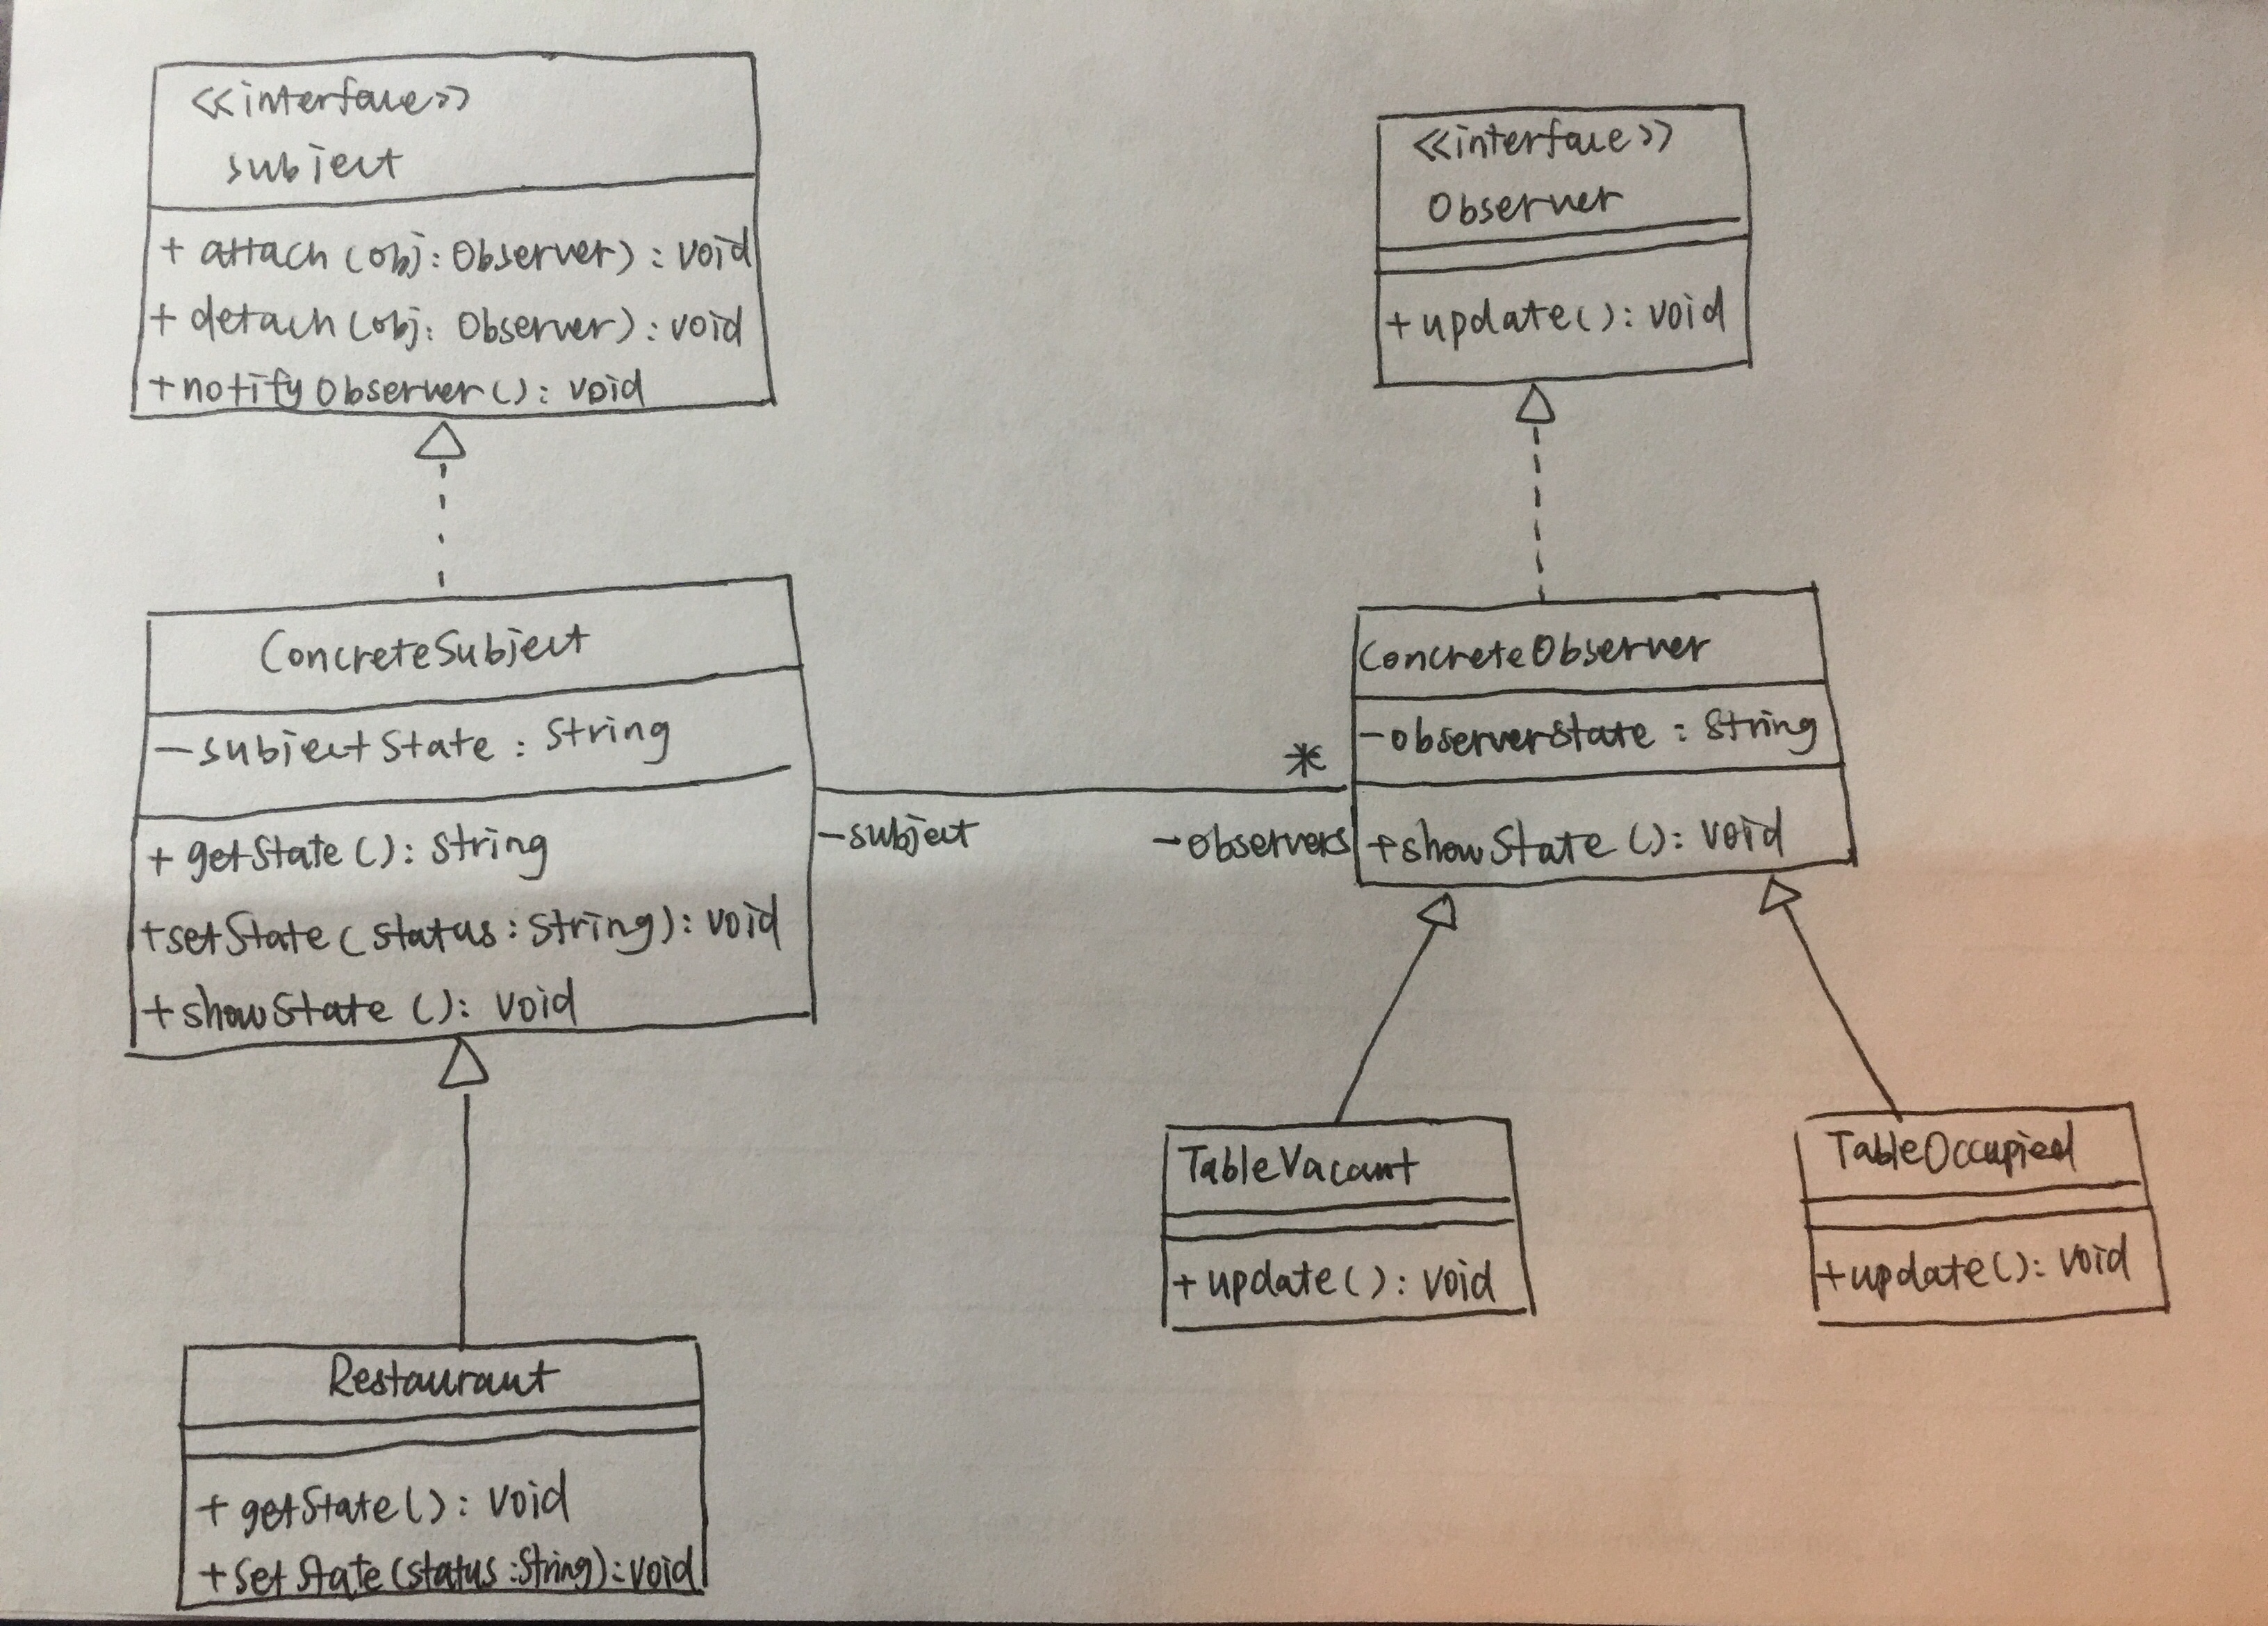 <<interface>>
subject
+ attach (obj: Observer) : void
+ detach (obj: Observer) : void
+notifyObserver(): void
<<interface>>
Observer
+update(): void
ConcreteSubject
-subjectState : String
+ getState(): String
+setState(status: String): void
+showState (): void
-subject
*
-observers
ConcreteObserver
-observerState : String
+showState (): void
TableVacant
+ update(): void
TableOccupied
+update(): void
Restaurant
+ getState(): void
+setState(status:String):void